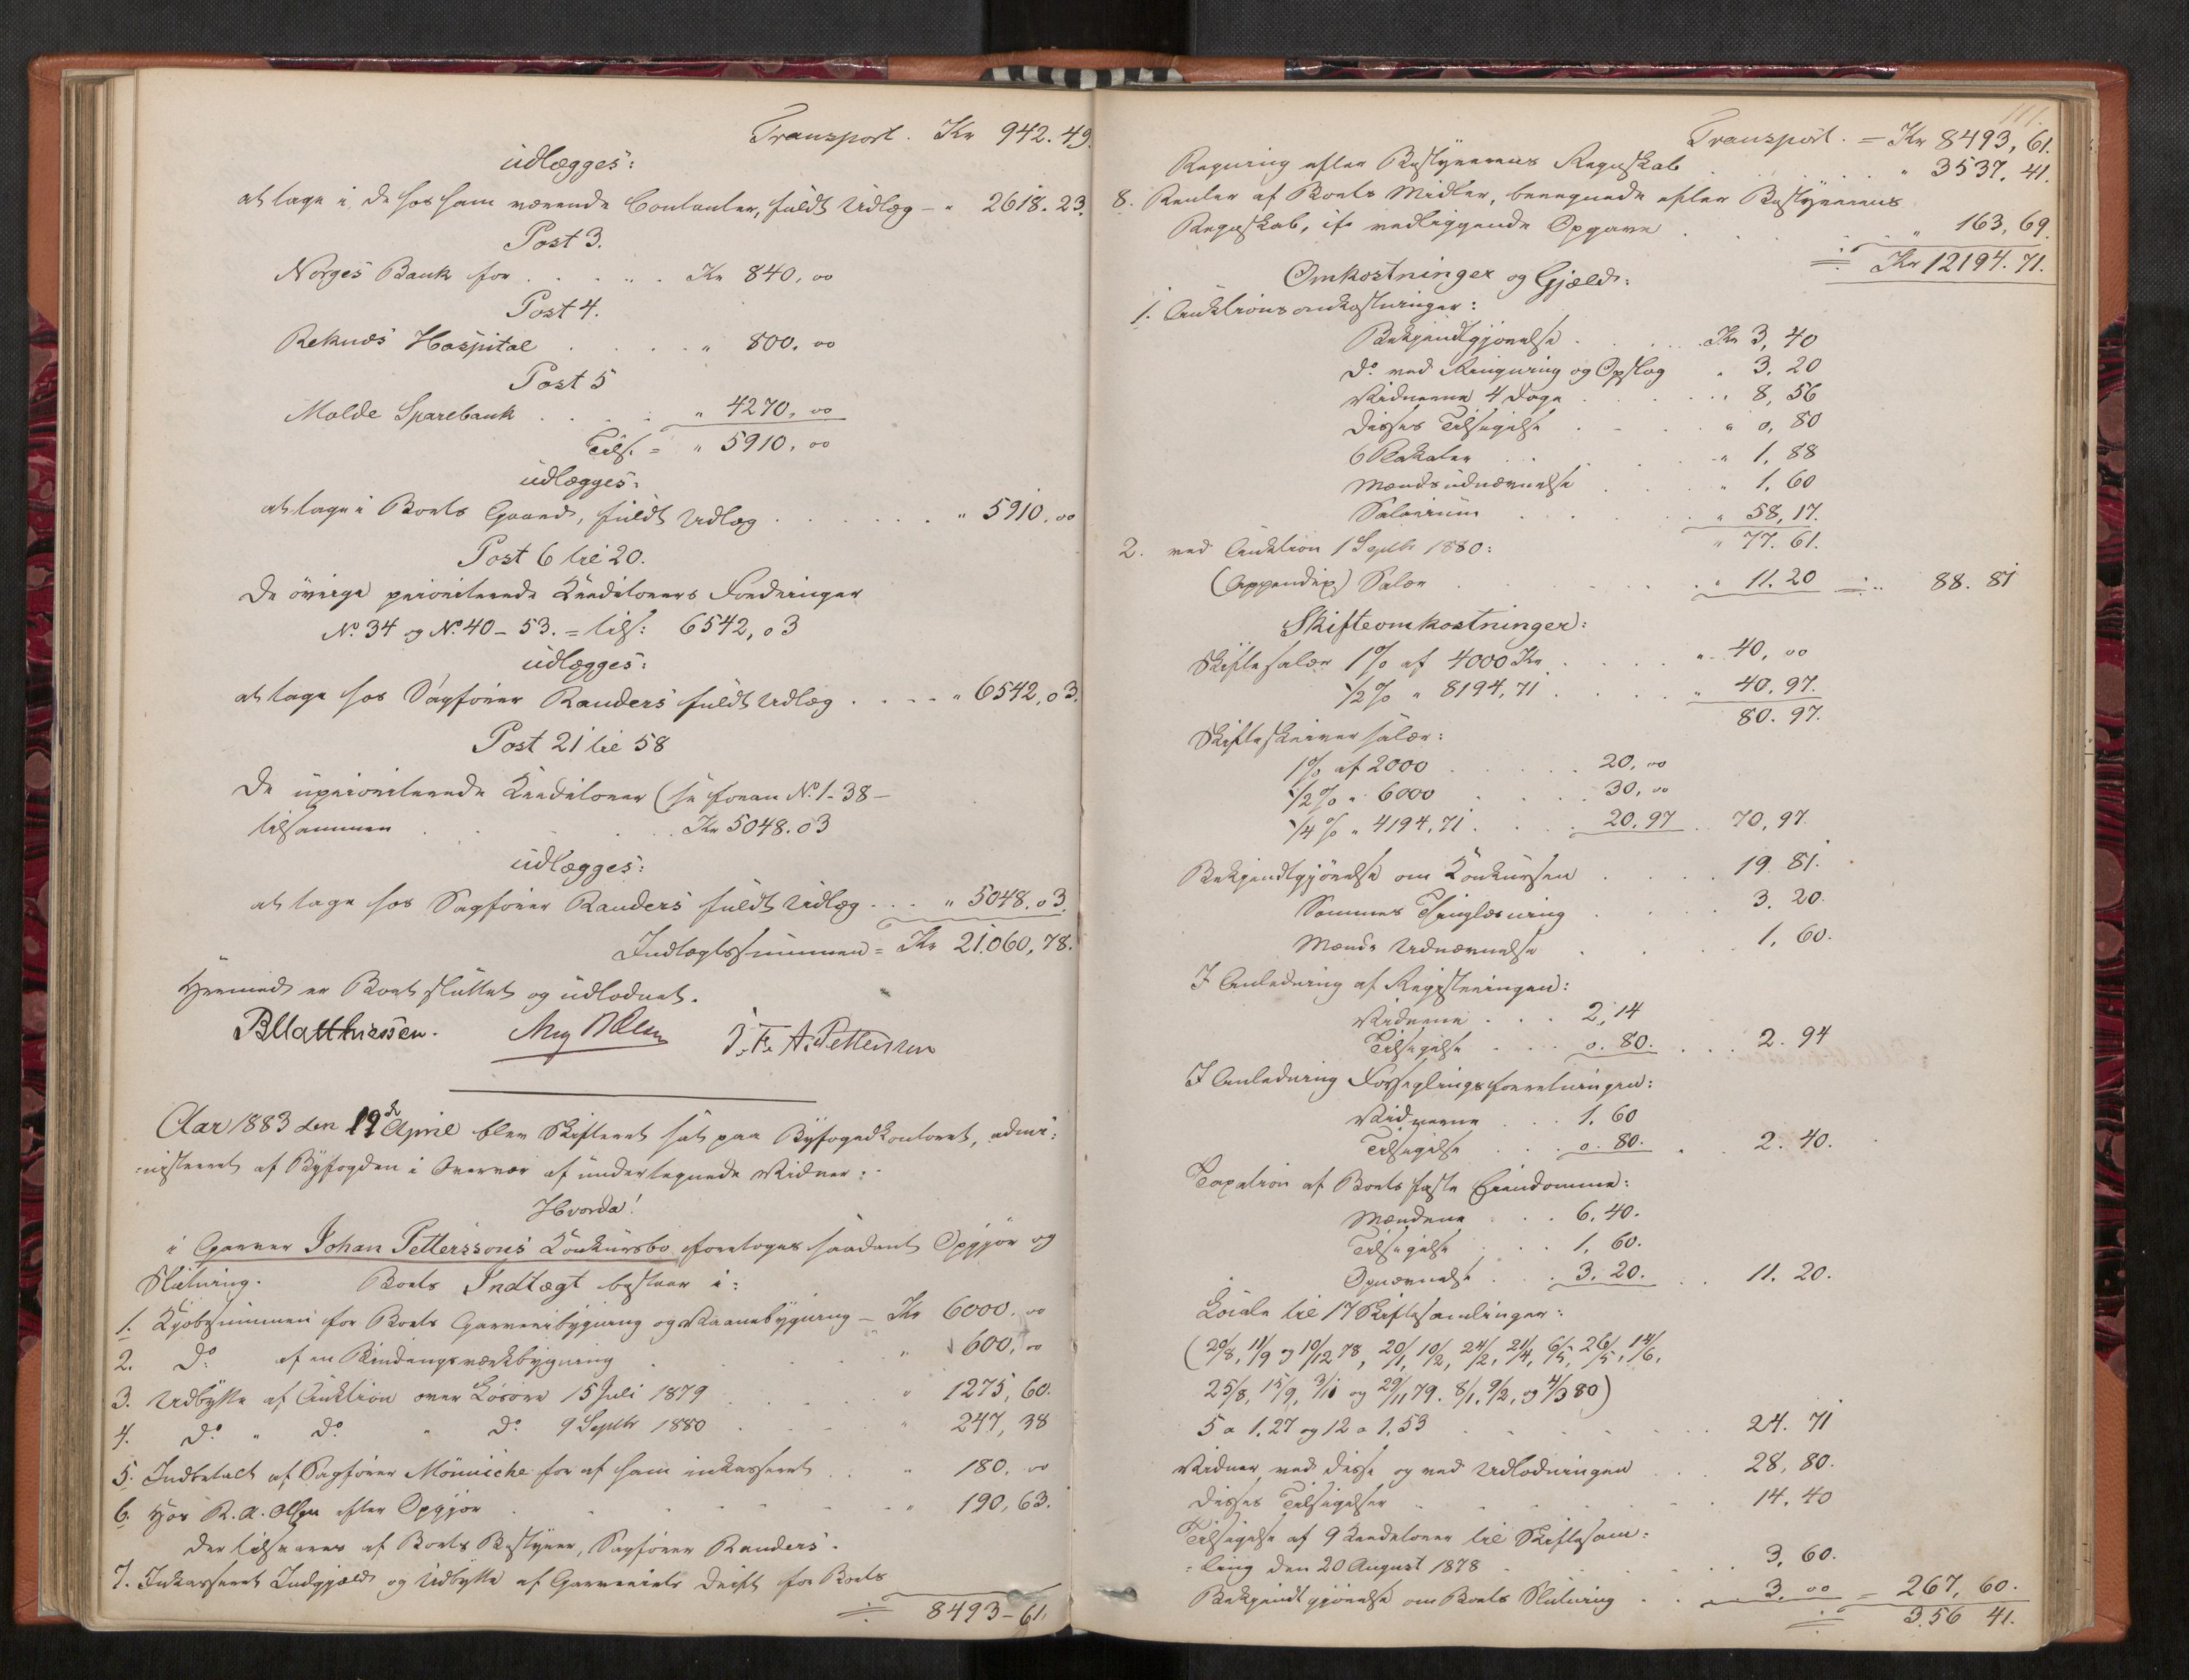 Transport. Kr 942.49.
udlægges:
at tage i de hos ham værende Contanter, fuldt Udlæg - " 2618.23.
Post 3.
Norges Bank for . . . . . Kr 840,00
Post 4.
Reknes Hospital . . . . " 800,00
Post 5
Molde Sparebank . . . . " 4270,00
Tils. = " 5910,00
udlægges:
at tage i Boets Gaard, fuldt Udlæg . . . . . . " 5910,00
Post 6 til 20.
De övrige prioriterede Kreditorers Fordringer
No. 34 og No. 40-53. = tils: 6542,03
udlægges:
at tage hos Sagförer Randers fuldt Udlæg . . . . " 6542,03.
Post 21 til 58
De uprioriterede Kreditorer (se foran No. 1-38-
tilsammen . . . Kr 5048.03
udlægges:
at tage hos Sagförer Randers fuldt Udlæg . . . " 5048.03.
Indtægtssummen = Kr 21.060,78.
Hermed er Boet sluttet og udloddet.
B Matthiessen. J. F. A. Pettersen
Aar 1883 den 19de April blev Skifteret sat paa Byfogedkontoret, admi-
nistreret af Byfogden i Overvær af undertegnede Vidner:
Hvorda!
i Garver Johan Petterssons Konkursbo foretoges saadant Opgjör og
Slutning. Boets Indtægt bestaar i:
1. Kjöbesummen for Boets Garveribygning og Vaanebygning - Kr 6000,00
2. Do. af en Bindingsværkbygning " 600,00
3. Udbytte af Auktion over Lösöre 15 Juli 1879 . . . . " 1275,60.
4. Do. " Do. " Do. 9 Septbr 1880 . . . . " 247,38
5. Indbetalt af Sagförer Mönniche for af ham inkasseret . . " 180,00
6. Hos R. A. Olsen efter Opgjör . . . . " 190,63.
der tilsvares af Boets Bestyrer, Sagförer Randers.
7. Inkasseret Indgjæld og Udbytte af Garveriets Drift for Boets
8493-61.
111.
Transport. = Kr 8493,61.
Regning efter Bestyrerens Regnskab . . . . " 3537.41.
8. Renter af Boets Midler, beregnede efter Bestyrerens
Regnskab, ifr vedliggende Opgave . . . . " 163,69.
Kr 12194.71.
Omkostninger og Gjæld:
1. Auktionsomkostninger:
Bekjendtgjörelse . . . . Kr 3,40
Do. ved Ringning og Opslag " 3.20
Vidnerne 4 Dage . . . . " 8,56
Disses Tilsigelse . . . " 0,80
6 Plakater . . . " 1,88
Mændsudnævnelse . . " 1,60
Salarium . . . . " 58,17.
" 77.61.
2. ved Auktion 1 Septbr 1880:
(Appendix) Salær . . . . " 11.20 = " 88.81
Skifteomkostninger:
Skiftesalær 1% af 4000 Kr . . . . " 40,00
1/2% " 8194,71 . . . . " 40,97.
80.97.
Skifteskriversalær:
1% af 2000 . . . . 20,00
1/2% " 6000 . . . . 30,00
1/4% " 4194,71 . . . . 20,97 . 70,97
Bekjendtgjörelse om Konkursen . . . . 19.81.
Sammes Thinglæsning . . . . 3.20.
Mænds Udnævnelse . . . . 1,60.
I Anledning af Registreringen:
Vidnerne . . . 2,14
Tilsigelse . . . 0.80. . . . 2.94
I Anledning Forseglingsforretningen:
Vidnerne . . . 1.60
Tilsigelse . . . 0.80. . . 2.40.
Taxation af Boets faste Eiendomme:
Mændene . . . 6.40.
Tilsigelse . . . 1,60.
Opnævnelse . . . 3.20. . . 11.20.
Lokale til 17 Skiftesamlinger:
(20/8, 11/9 og 10/12 78, 20/1, 10/2, 24/2, 21/4, 6/5, 26/5, 14/6,
25/8, 15/9, 3/10 og 29/11 79. 8/1, 9/2, og 4/3 80)
5 a 1.27 og 12 a 1,53 . . . . 24.71
Vidner ved disse og ved Udlodningen . . 28,80.
Disses Tilsigelser . . . . 14.40
Tilsigelse af 9 Kreditorer til Skiftesam-
ling den 20 August 1878 . . . . 3,60.
Bekjendtgjörelse om Boets Slutning . . 3,00 = 267,60.
356 41.